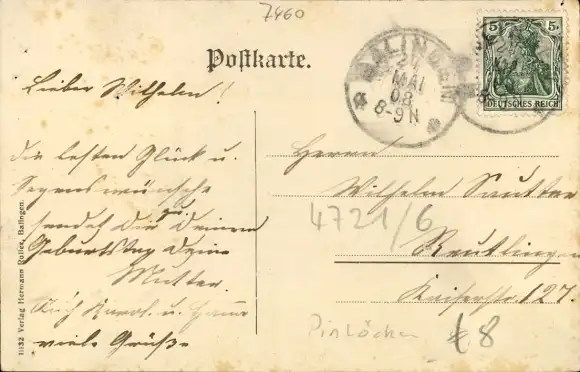 7460
Postkarte.
BALINGEN
MAI
08
8-9 N
5
5
DEUTSCHES REICH
Lieber Wilhelm!
die besten Glück u.
Segenswünsche
sendet dir zu deinem
Geburtstag deine
Mutter.
Auch Karol. u.
viele Grüße
Herrn
Wilhelm Sautter
Reutlingen
Kaiserstr. 127.
4721/6
8
11132 Verlag Hermann Balingen.